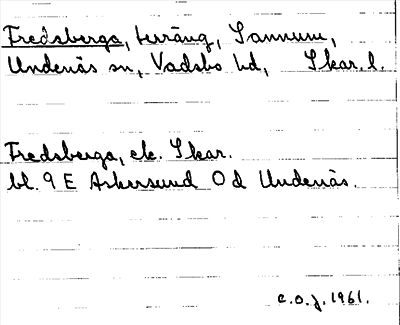 Fredsberga, terräng, Sannum,
Undenäs sn, Vadsbo hd, Skar. l.
Fredsberga, ek. Skar.
bl. 9 E Askersund O d Undenäs.
C.O.J. 1961.